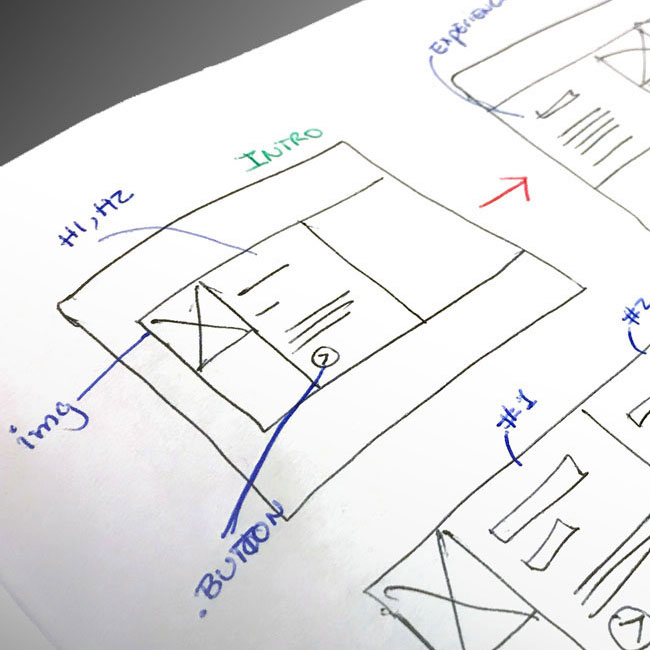 EXPERIENC
INTRO
H1, H2
img
.BUTTON
#2
#1